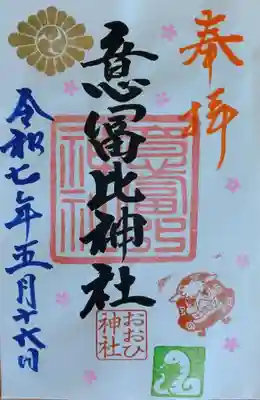 奉拝
意冨比神社
意富比神社
おおひ
神社
令和七年五月十六日